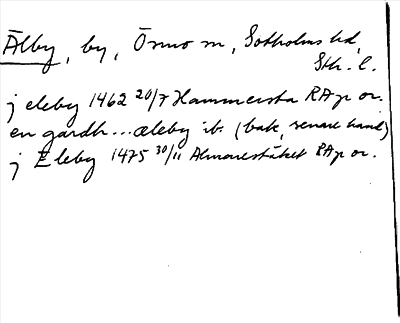 Älby, by, Ösmo sn, Sotholms hd,
Sth. l.
j eleby 1462 20/7 Hammersta RAp or.
en gardh... æleby ib. (bak, senare hand)
j Eleby 1475 30/11 Almarestäket RAp or.